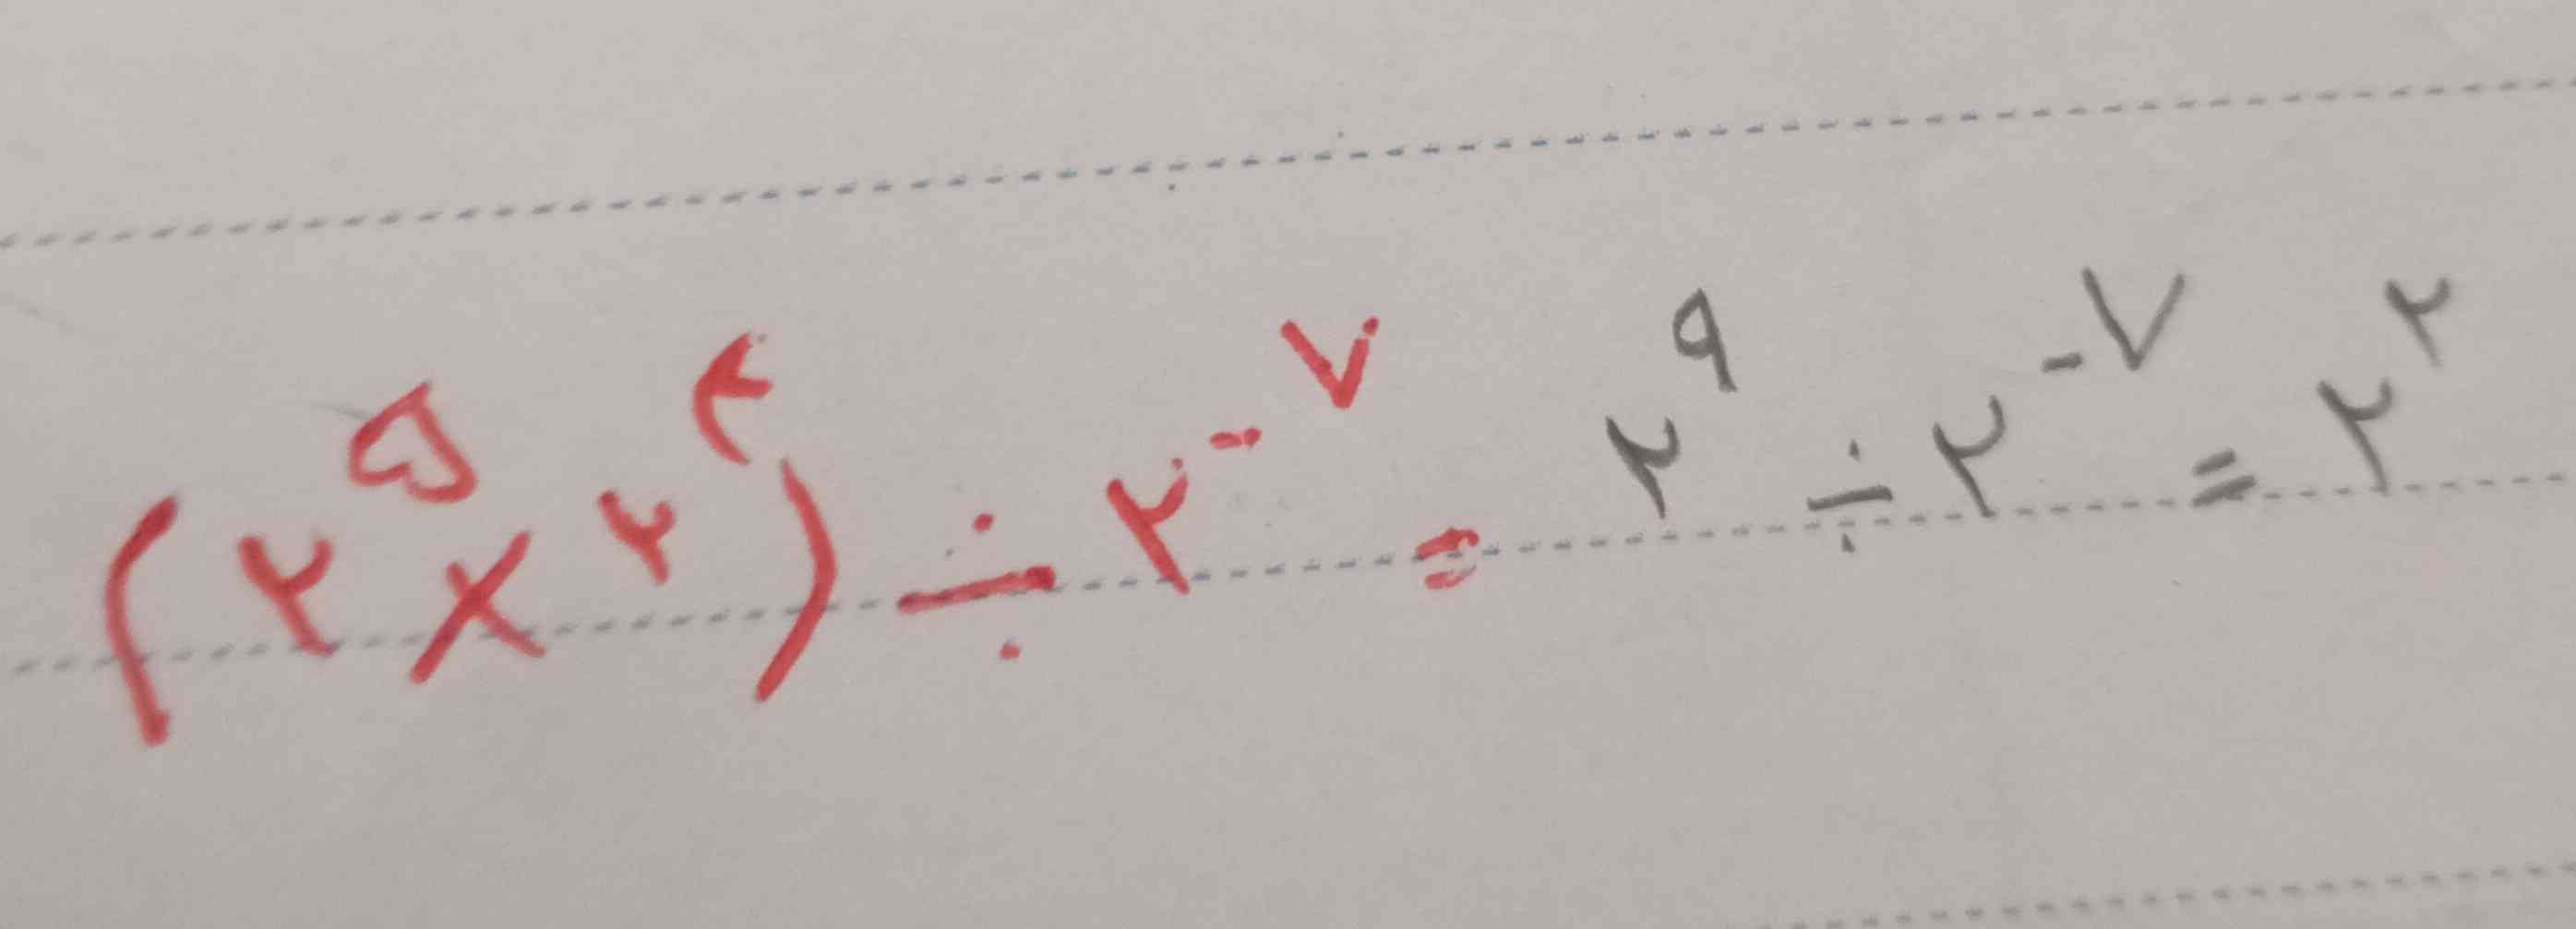 (۲^۵ × ۲^۴) ÷ ۲^-۷ = ۲^۹ ÷ ۲^-۷ = ۲^۲